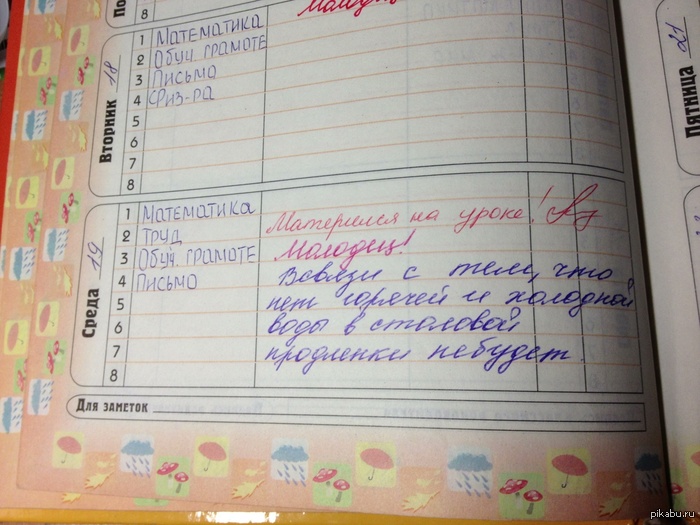 По
8
Молодец
Вторник 18
1 Математика
2 Обуч. грамоте
3 Письмо
4 Физ-ра
5
6
7
8
Среда 19
1 Математика
2 Труд
3 Обуч. грамоте
4 Письмо
5
6
7
8
Матерился на уроке!
Молодец!
Всвязи с тем, что
нет горячей и холодной
воды в столовой
продленки небудет.
Для заметок
Пятница 21
pikabu.ru